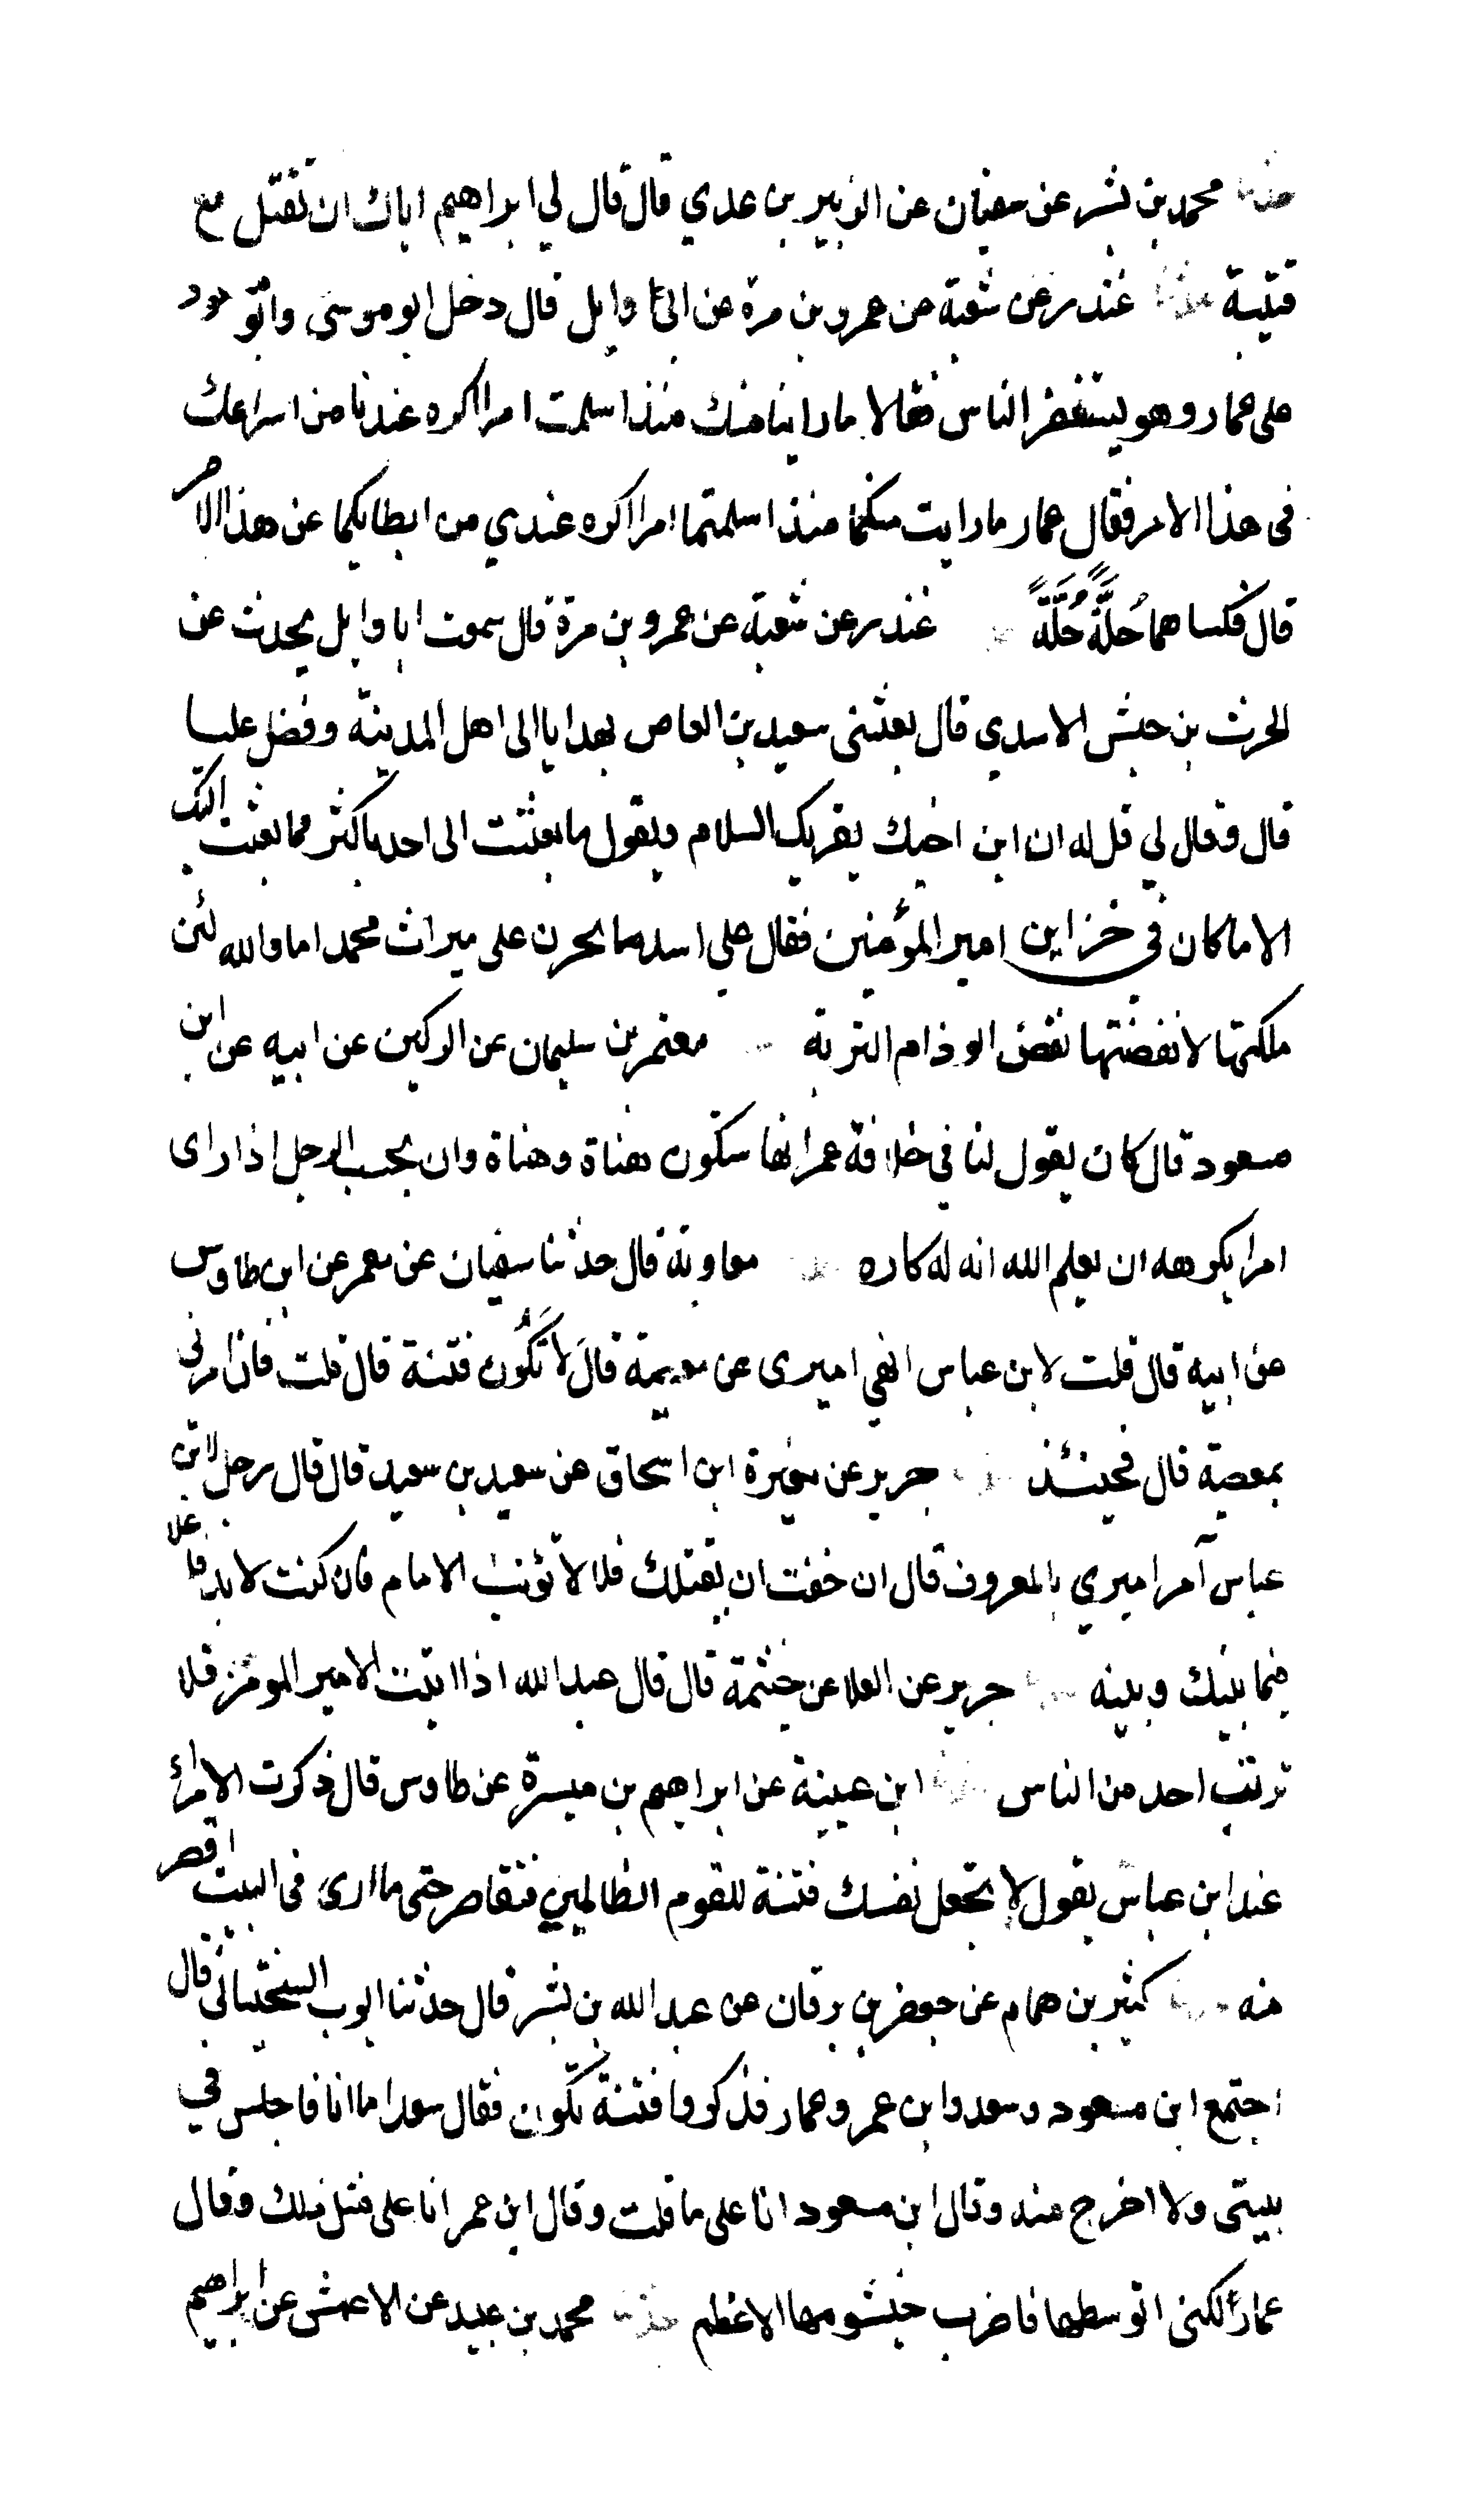 حدثنا محمد بن بشر عن سفيان عن الزبير بن عدي قال قال لي ابراهيم اياك ان تقتل مع
قتيبة حدثنا غندر عن شعبة عن عمرو بن مرة عن ابي وايل قال دخل ابو موسى وابو مسعود
على عمار وهو يستنفر الناس فقالا ما راينا منك منذ اسلمت امرا اكره عندنا من اسراعك
في هذا الامر فقال عمار ما رايت منكما منذ اسلمتما امرا اكره عندي من ابطايكما عن هذا الامر
قال فكساهما حُلَّةً حُلَّةً غندر عن شعبة عن عمرو بن مرة قال سمعت ابا وايل يحدث عن
الحرث بن حبش الاسدي قال بعثني سعيد بن العاص بهدايا الى اهل المدينة وفضل عليا
قال وقال لي قل له ان ابن اخيك يقريك السلام ويقول ما بعثت الى احد باكثر مما بعثت اليك
الا ما كان في خزاين امير المؤمنين فقال علي اسد ما يحزن على ميراث محمد اما والله لئن
ملكتها لانفضنها نفض الوذام التربة معتمر بن سليمان عن الركين عن ابيه عن ابن
مسعود قال كان يقول لنا في خلافة عمر انها ستكون هناة وهناة وان بحسب الرجل اذا راى
امرا يكرهه ان يعلم الله انه له كاره معاوية قال حدثنا سفيان عن معمر عن ابن طاوس
عن ابيه قال قلت لابن عباس انهي اميري عن معصية قال لا تكُون فتنة قال قلت فان امرني
بمعصية قال فحينئذ جرير عن مغيرة ابن اسحاق عن سعيد بن سعيد قال قال رجل لابن
عباس آمر اميري بالمعروف قال ان خفت ان يقتلك فلا لا تؤنب الامام فان كنت لا بد فاعلا
فيما بينك وبينه حدثنا جرير عن العلا عن خيثمة قال قال عبد الله اذا اتيت الامير المومر فلا
ترتب احد من الناس حدثنا ابن عيينة عن ابراهيم بن ميسرة عن طاوس قال ذكرت الامراء
عند ابن عباس يقول لا تجعل نفسك فتنة للقوم الظالمين فتقاصر حتى ما ارى في البيت اقصر
منه حدثنا كثير بن همام عن جعفر بن برقان عن عبد الله بن بشر قال حدثنا ايوب السختياني قال
اجتمع ابن مسعود وسعد وابن عمر وعمار فذكروا فتنة تكون فقال سعد اما انا فاجلس في
بيتي ولا اخرج منه وقال ابن مسعود انا على ما قلت وقال ابن عمر انا على مثل ذلك وقال
عمار لكني اتوسطها فاضرب خيشومها الاعظم حدثنا محمد بن عبيد عن الاعمش عن ابراهيم